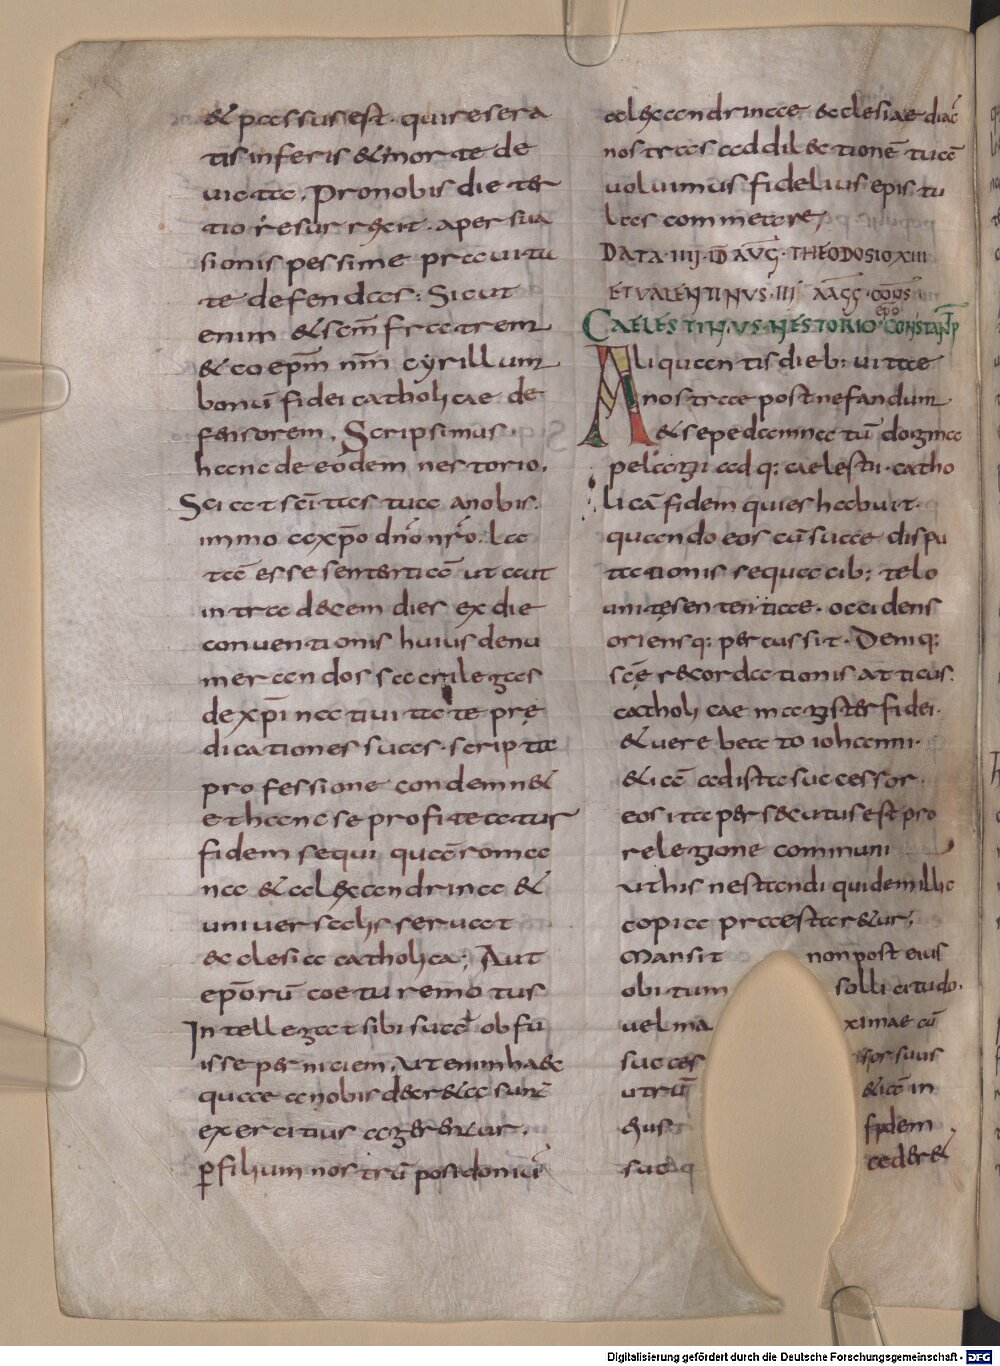 & passus est. qui resera
tis inferis & morte de
uicta. Pro nobis die ter
tio resurrexit. a persua
sionis pessime prauita
te defendas: Sicut
enim & scm̄ fratrem
& coep̄m nm̄ cyrillum
bonū fidei catholicae de
fensorem. Scripsimus
hanc de eodem nestorio.
Sciat sc̄itas tua a nobis.
immo a xp̄o dn̄o nr̄o. La
tā esse sententiā ut aut
intra decem dies ex die
conuentionis huius denu
merandos sacrilegas
de xp̄i natiuitate prę
dicationes suas. scripta
professione condemn&
et hanc se profiteatur
fidem sequi quā roma
na & alexandrina &
uniuersalis seruat
&clesia catholica; Aut
ep̄orū coetu remotus
Intellegat sibi suā obfu
isse perniciem. ut enim haec
quae a nobis decr&a sunt
exercitius agerentur.
p̄ filium nostrū posidoniū
alexandrinae &clesiae diac̄
nostras ad dil&tionē tuā
uoluimus fidelius epistu
las commetare;
DATA IIII ID AVG THEODOSIO XIII
ET VALENTINVS III AAGG CONS
CAELESTINVS NESTORIO EPO CONSTANTP
Aliquantis dieb: uitae
nostrae post nefandum
& sepe damnatū dogma
pelagii adq: caelestii. catho
licā fidem quies habuit.
quando eos cū suae dispu
tationis sequacib: telo
unitę sententiae. occidens
oriensq: percussit. Deniq:
sc̄ę recordationis atticus.
catholicae magister fidei.
& uere beato iohanni.
&iā ad ista successor.
eos ita persecutus est pro
relegione communi
ut his nestandi quidem illic
copia praestar&ur;
Mansit non post eius
obitum sollicitudo.
uel ma ximae cū
succes sor suus
utrū &iā in
huius fidem
sua q aeder&
Digitalisierung gefördert durch die Deutsche Forschungsgemeinschaft - DFG